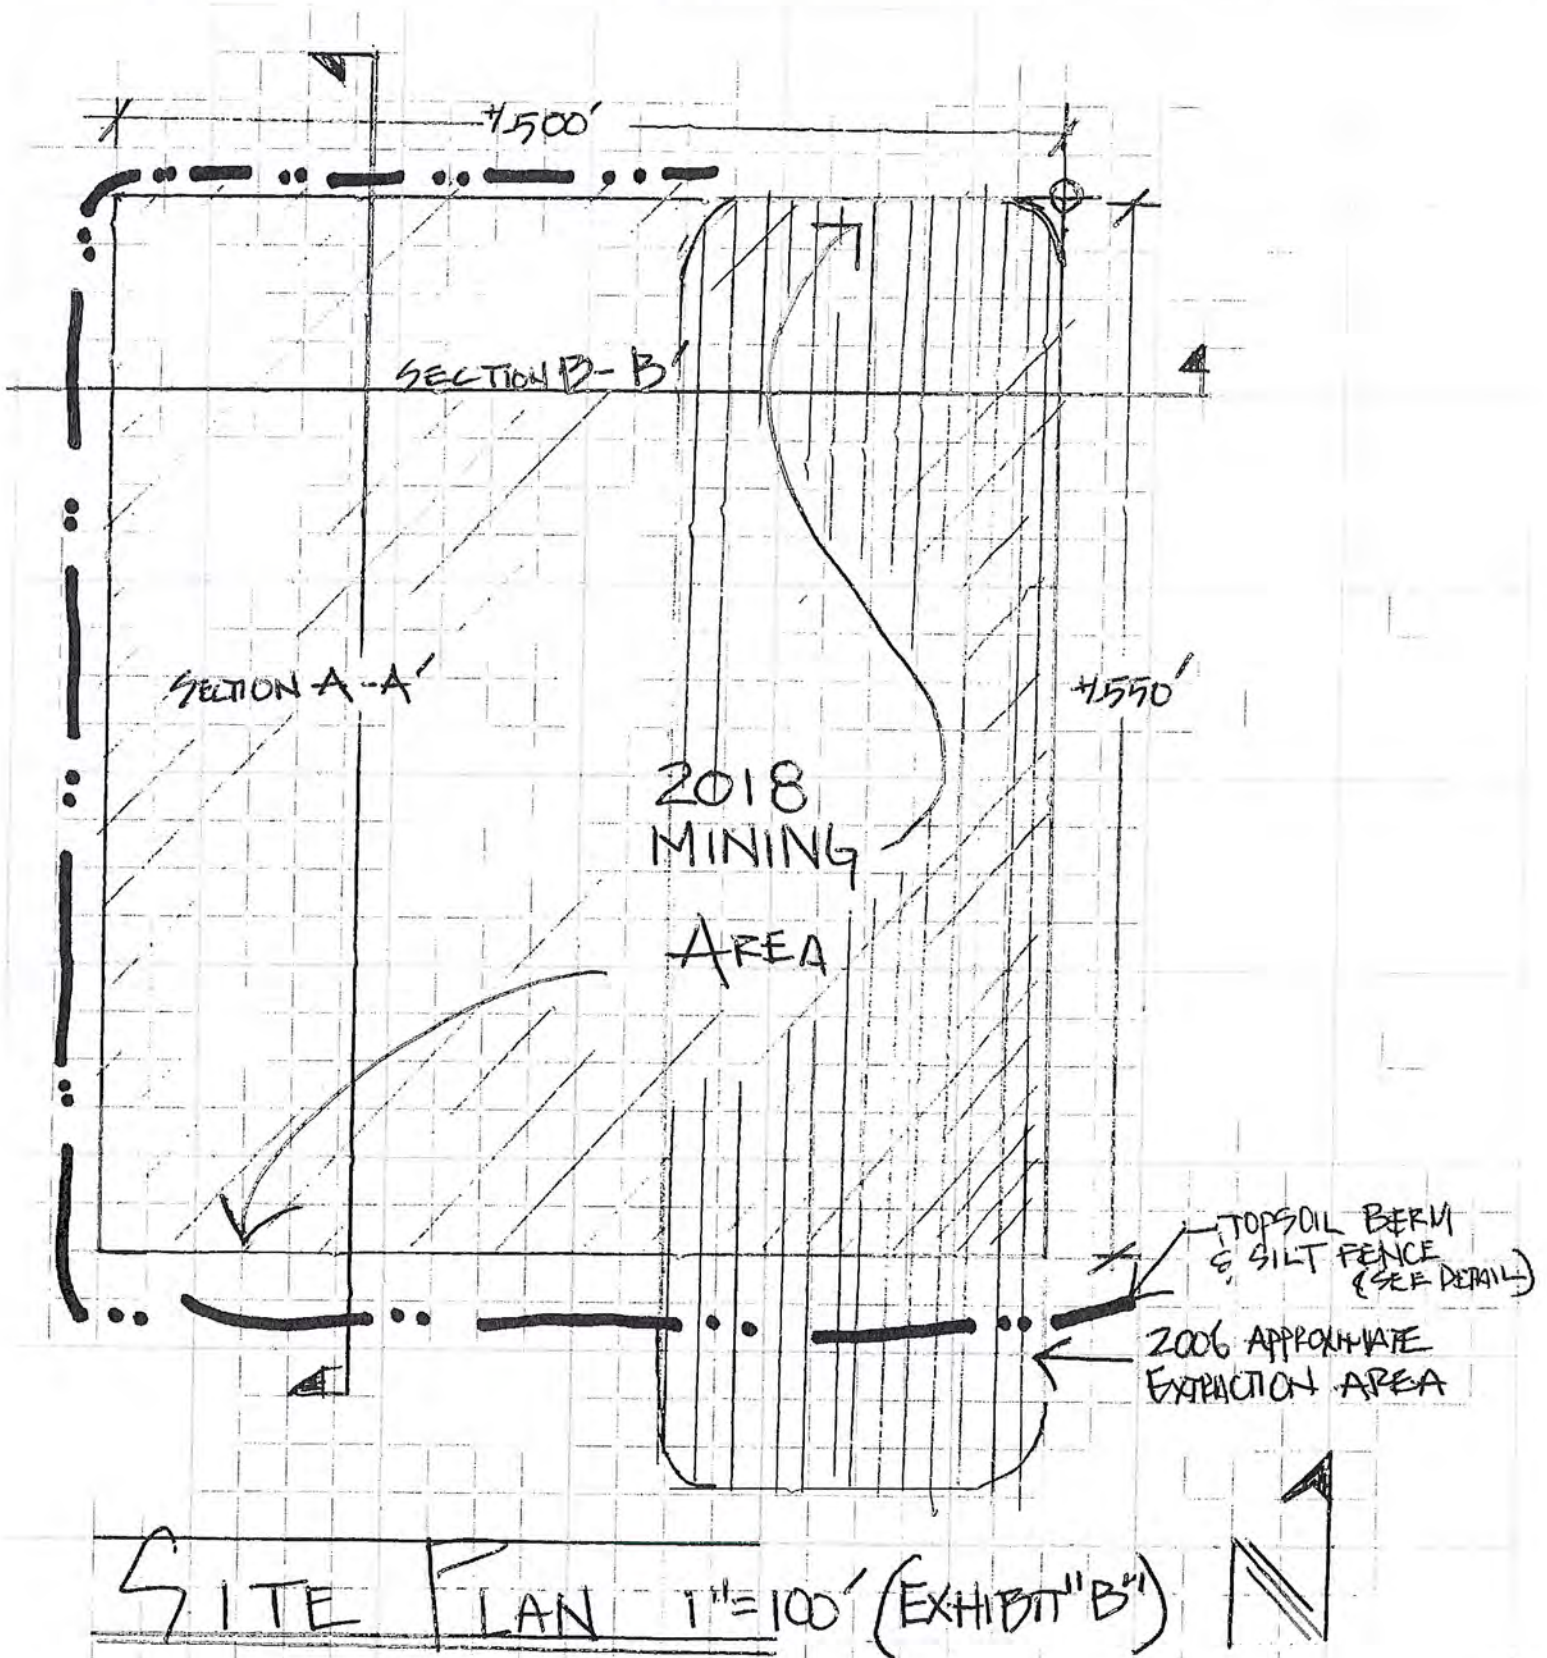 +/-500'
SECTION B-B'
SECTION A-A'
+/-550'
2018
MINING
AREA
TOPSOIL BERM
& SILT FENCE
(SEE DETAIL)
2006 APPROXIMATE
EXTRACTION AREA
SITE PLAN 1"=100' (EXHIBIT "B")
N